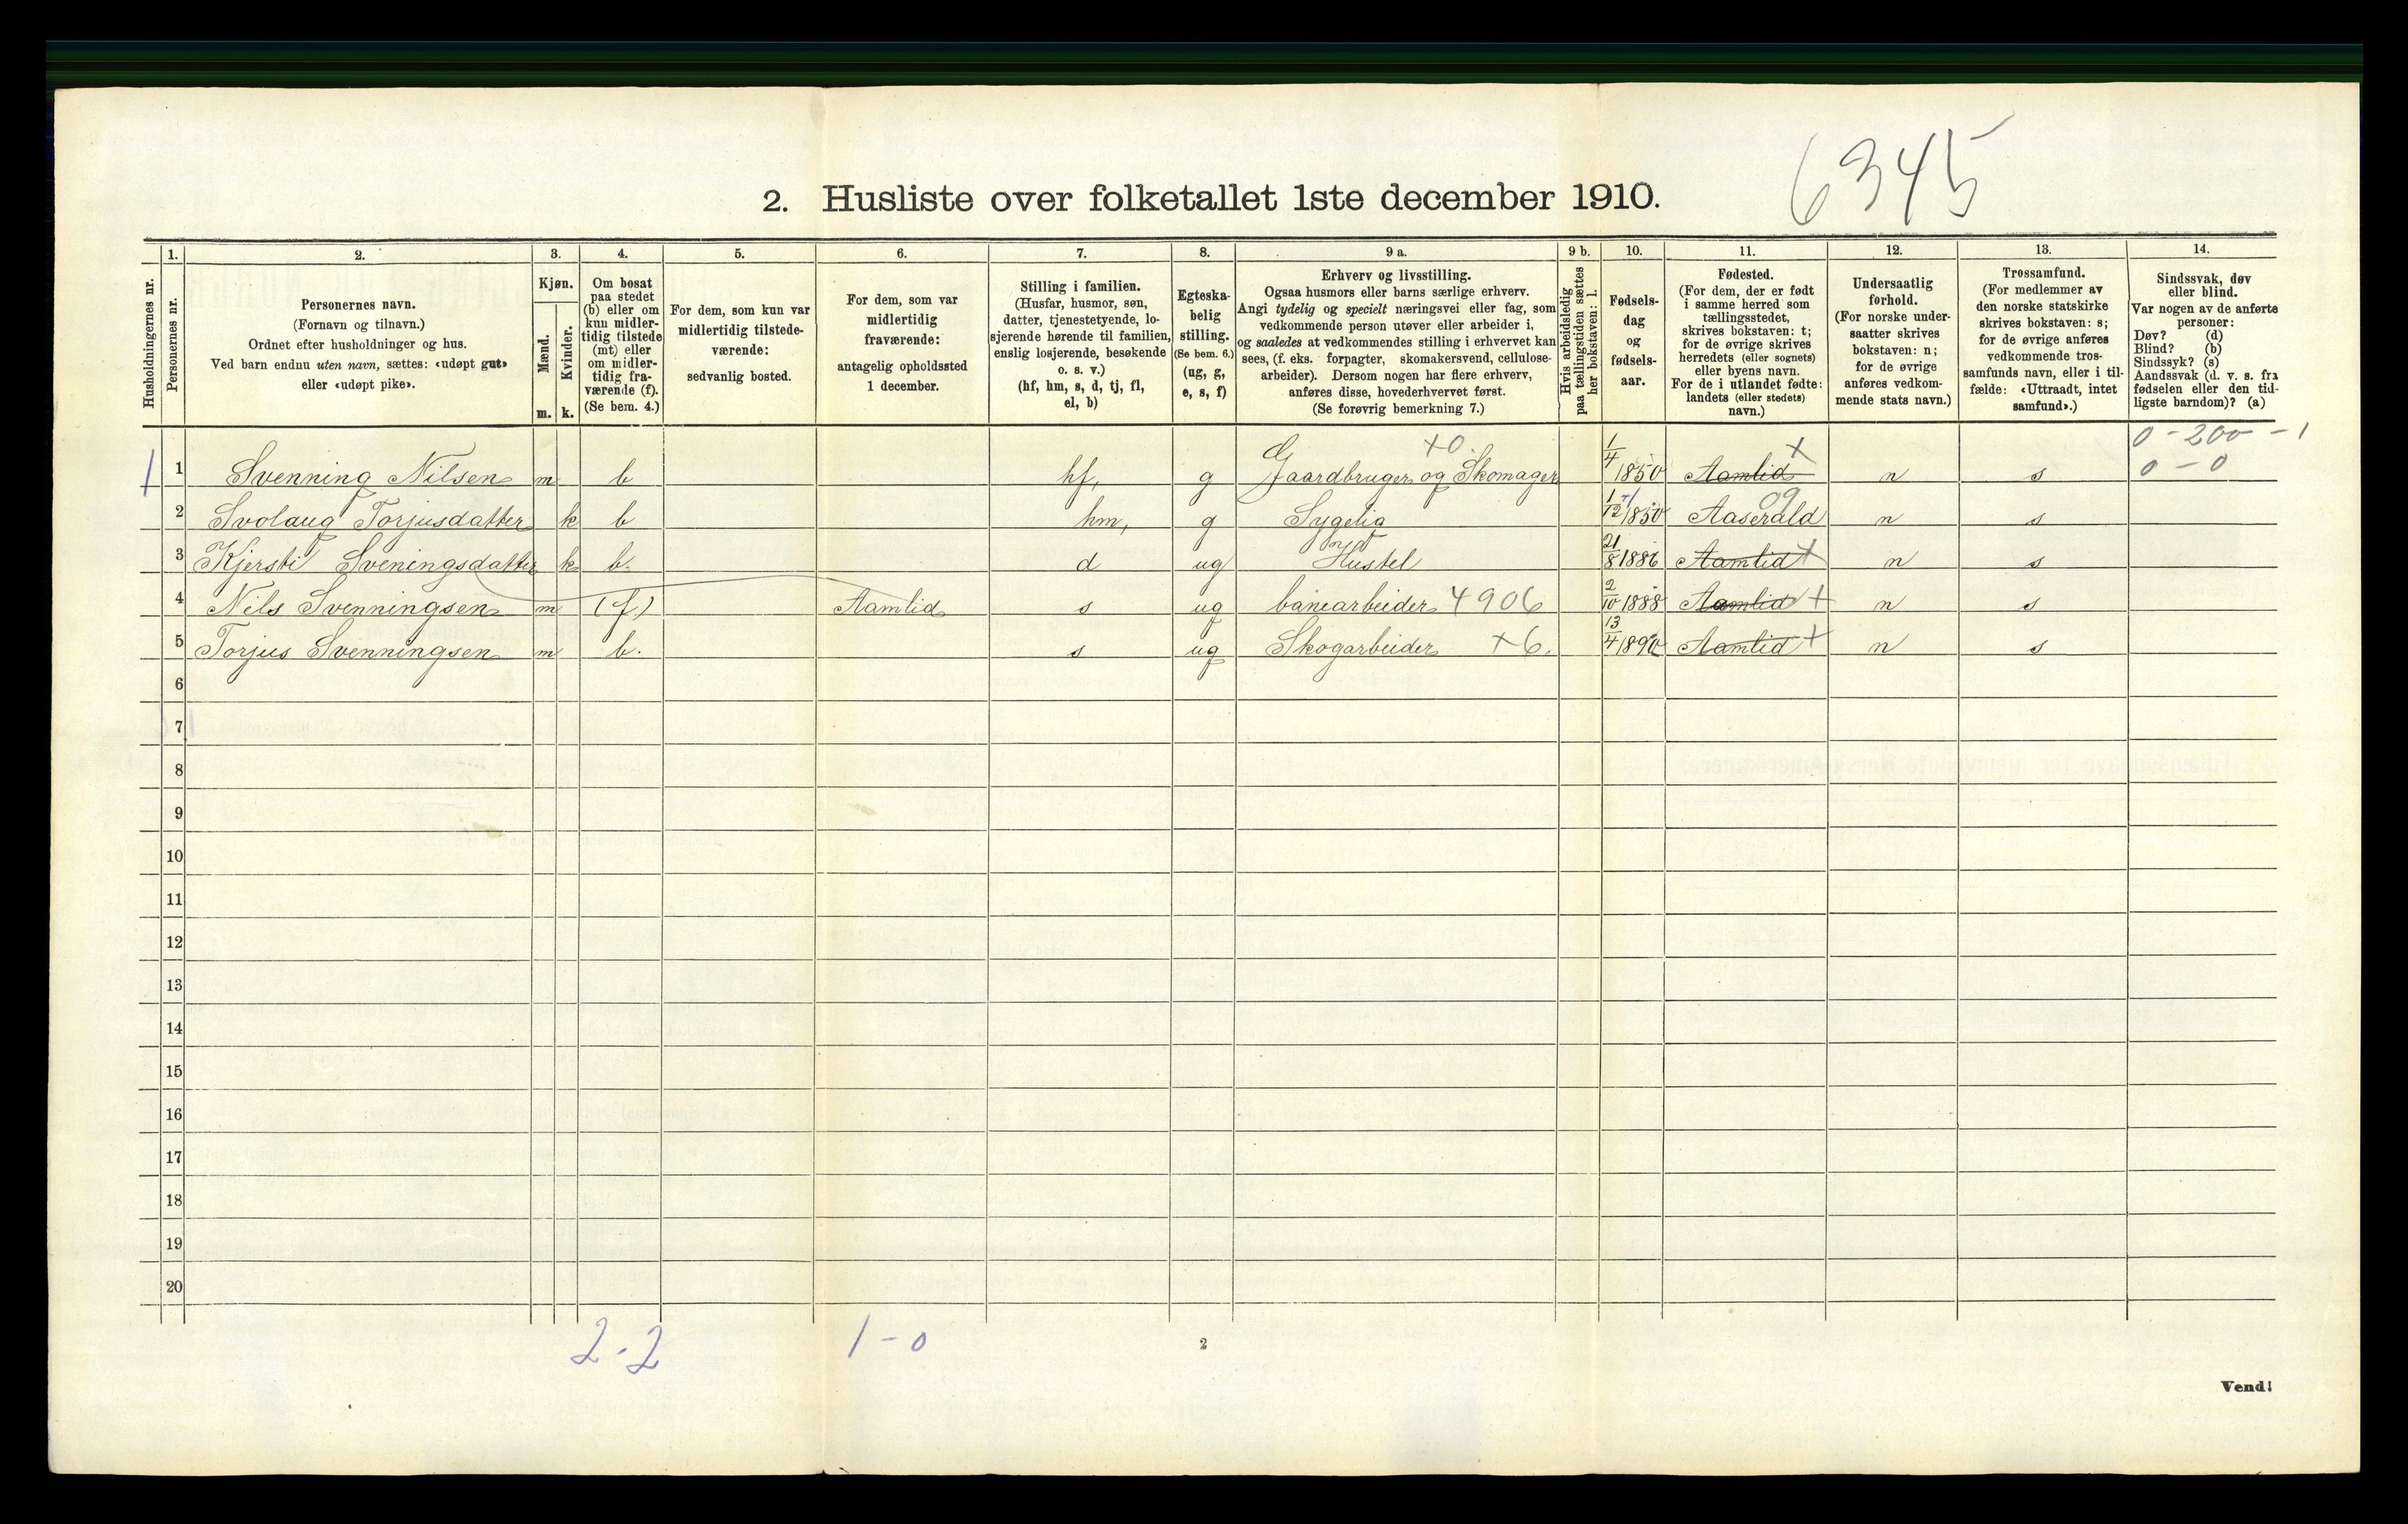 6345
2. Husliste over folketallet 1ste december 1910.
Husholdningernes nr.
1.
Personernes nr.
2.
Personernes navn.
(Fornavn og tilnavn.)
Ordnet efter husholdninger og hus.
Ved barn endnu uten navn, sættes: «udøpt gut»
eller «udøpt pike».
3.
Kjøn.
Mænd.
m.
Kvinder.
k.
4.
Om bosat
paa stedet
(b) eller om
kun midler-
tidig tilstede
(mt) eller
om midler-
tidig fra-
værende (f).
(Se bem. 4.)
5.
For dem, som kun var
midlertidig tilstede-
værende:
sedvanlig bosted.
6.
For dem, som var
midlertidig
fraværende:
antagelig opholdssted
1 december.
7.
Stilling i familien.
(Husfar, husmor, søn,
datter, tjenestetyende, lo-
sjerende hørende til familien,
enslig losjerende, besøkende
o. s. v.)
(hf, hm, s, d, tj, fl,
el, b)
8.
Egteska-
belig
stilling.
(Se bem. 6.)
(ug, g,
e, s, f)
9 a.
Erhverv og livsstilling.
Ogsaa husmors eller barns særlige erhverv.
Angi tydelig og specielt næringsvei eller fag, som
vedkommende person utøver eller arbeider i,
og saaledes at vedkommendes stilling i erhvervet kan
sees, (f. eks. forpagter, skomakersvend, cellulose-
arbeider). Dersom nogen har flere erhverv,
anføres disse, hovederhvervet først.
(Se forøvrig bemerkning 7.)
9 b.
Hvis arbeidsledig
paa tællingstiden sættes
her bokstaven: l.
10.
Fødsels-
dag
og
fødsels-
aar.
11.
Fødested.
(For dem, der er født
i samme herred som
tællingsstedet,
skrives bokstaven: t;
for de øvrige skrives
herredets (eller sognets)
eller byens navn.
For de i utlandet fødte:
landets (eller stedets)
navn.)
12.
Undersaatlig
forhold.
(For norske under-
saatter skrives
bokstaven: n;
for de øvrige
anføres vedkom-
mende stats navn.)
13.
Trossamfund.
(For medlemmer av
den norske statskirke
skrives bokstaven: s;
for de øvrige anføres
vedkommende tros-
samfunds navn, eller i til-
fælde: «Uttraadt, intet
samfund».)
14.
Sindssvak, døv
eller blind.
Var nogen av de anførte
personer:
Døv? (d)
Blind? (b)
Sindssyk? (s)
Aandssvak (d. v. s. fra
fødselen eller den tid-
ligste barndom)? (a)
+0. + 0-200-1
1 1 Svenning Nilsen m b hf, g Gaardbruger og Skomager 1/4 1850 Aamlid n s 0-0
09
2 Svolaug Torjusdatter k b hm, g Sygelig 1/12 1850 Aaserald n s
3 Kjersti Sveningsdatter k b. d ug Hustel 21/8 1886 Aamlid + n s
4 Nils Svenningsen m (f) Aamlid s ug banearbeider 4906 2/10 1888 Aamlid + n s
5 Torjus Svenningsen m b. s ug Skogarbeider +6. 13/4 1890 Aamlid + n s
6
7
8
9
10
11
12
13
14
15
16
17
18
19
20
2-2 1-0
2
Vend!